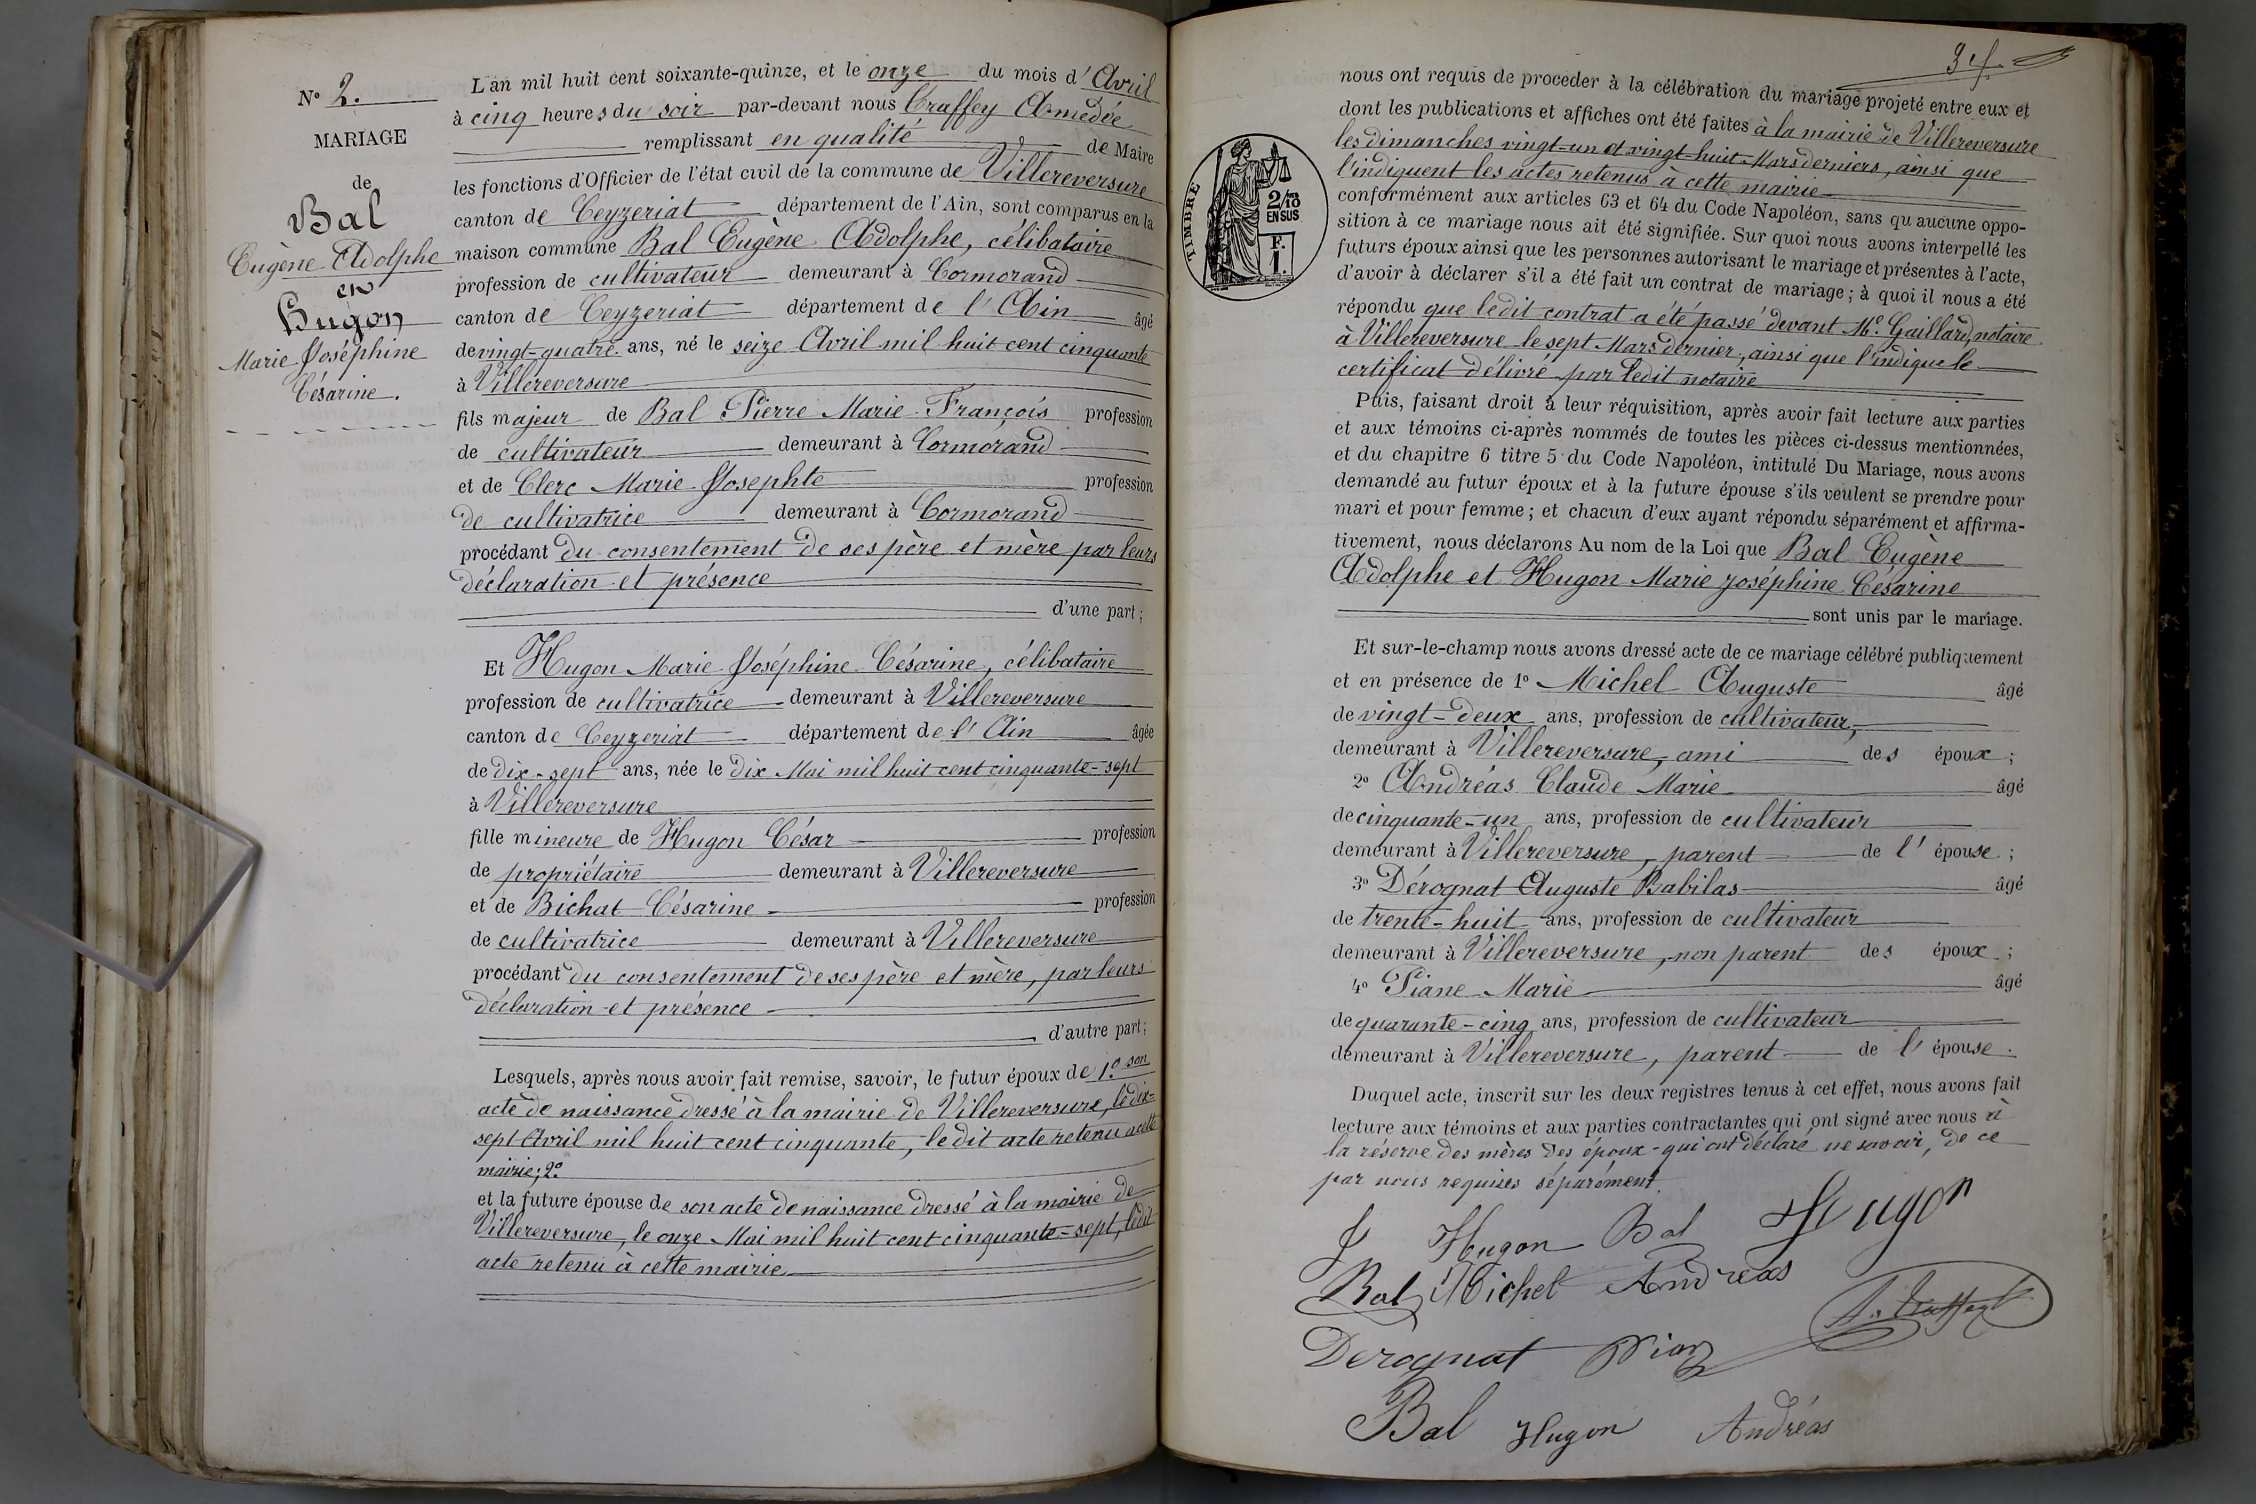 N° 2.
MARIAGE
de
Bal
Eugène Adolphe
et
Hugon
Marie Joséphine
Césarine.
L'an mil huit cent soixante-quinze, et le onze du mois d'Avril
à cinq heures du soir par-devant nous Traffey Amédée
remplissant en qualité de Maire
les fonctions d'Officier de l'état civil de la commune de Villereversure
canton de Ceyzeriat département de l'Ain, sont comparus en la
maison commune Bal Eugène Adolphe, célibataire
profession de cultivateur demeurant à Cormorand
canton de Ceyzeriat département de l'Ain âgé
de vingt-quatre ans, né le seize Avril mil huit cent cinquante
à Villereversure
fils majeur de Bal Pierre Marie François profession
de cultivateur demeurant à Cormorand
et de Clerc Marie Josephte profession
de cultivatrice demeurant à Cormorand
procédant du consentement de ses père et mère par leurs
déclaration et présence
d'une part;
Et Hugon Marie Joséphine Césarine, célibataire
profession de cultivatrice demeurant à Villereversure
canton de Ceyzeriat département de l'Ain âgée
de dix-sept ans, née le dix Mai mil huit cent cinquante-sept
à Villereversure
fille mineure de Hugon César profession
de propriétaire demeurant à Villereversure
et de Bichat Césarine profession
de cultivatrice demeurant à Villereversure
procédant du consentement de ses père et mère, par leurs
déclaration et présence
d'autre part;
Lesquels, après nous avoir fait remise, savoir, le futur époux de 1° son
acte de naissance dressé à la mairie de Villereversure, le dix-
sept Avril mil huit cent cinquante, ledit acte retenu à cette
mairie; 2°
et la future épouse de son acte de naissance dressé à la mairie de
Villereversure, le onze Mai mil huit cent cinquante-sept, ledit
acte retenu à cette mairie
nous ont requis de procéder à la célébration du mariage projeté entre eux et
dont les publications et affiches ont été faites à la mairie de Villereversure
les dimanches vingt-un et vingt-huit Mars derniers, ainsi que
l'indiquent les actes retenus à cette mairie
TIMBRE
2/10
EN SUS
F.
1.
conformément aux articles 63 et 64 du Code Napoléon, sans qu'aucune oppo-
sition à ce mariage nous ait été signifiée. Sur quoi nous avons interpellé les
futurs époux ainsi que les personnes autorisant le mariage et présentes à l'acte,
d'avoir à déclarer s'il a été fait un contrat de mariage; à quoi il nous a été
répondu que ledit contrat a été passé devant Me. Gaillard, notaire
à Villereversure le sept Mars dernier, ainsi que l'indique le
certificat délivré par ledit notaire
Puis, faisant droit à leur réquisition, après avoir fait lecture aux parties
et aux témoins ci-après nommés de toutes les pièces ci-dessus mentionnées,
et du chapitre 6 titre 5 du Code Napoléon, intitulé Du Mariage, nous avons
demandé au futur époux et à la future épouse s'ils veulent se prendre pour
mari et pour femme; et chacun d'eux ayant répondu séparément et affirma-
tivement, nous déclarons Au nom de la Loi que Bal Eugène
Adolphe et Hugon Marie Joséphine Césarine
sont unis par le mariage.
Et sur-le-champ nous avons dressé acte de ce mariage célébré publiquement
et en présence de 1° Michel Auguste âgé
de vingt-deux ans, profession de cultivateur,
demeurant à Villereversure, ami des époux;
2° Andréas Claude Marie âgé
de cinquante-un ans, profession de cultivateur
demeurant à Villereversure, parent de l'épouse;
3° Dérognat Auguste Babilas âgé
de trente-huit ans, profession de cultivateur
demeurant à Villereversure, non parent des époux;
4° Piane Marie âgé
de quarante-cinq ans, profession de cultivateur
demeurant à Villereversure, parent de l'épouse.
Duquel acte, inscrit sur les deux registres tenus à cet effet, nous avons fait
lecture aux témoins et aux parties contractantes qui ont signé avec nous à
la réserve des mères des époux qui ont déclaré ne savoir, de ce
par nous requises séparément
Hugon Bal Hugon
Bal Michel Andréas
A. Traffey
Derognat Pian
Bal Hugon Andréas